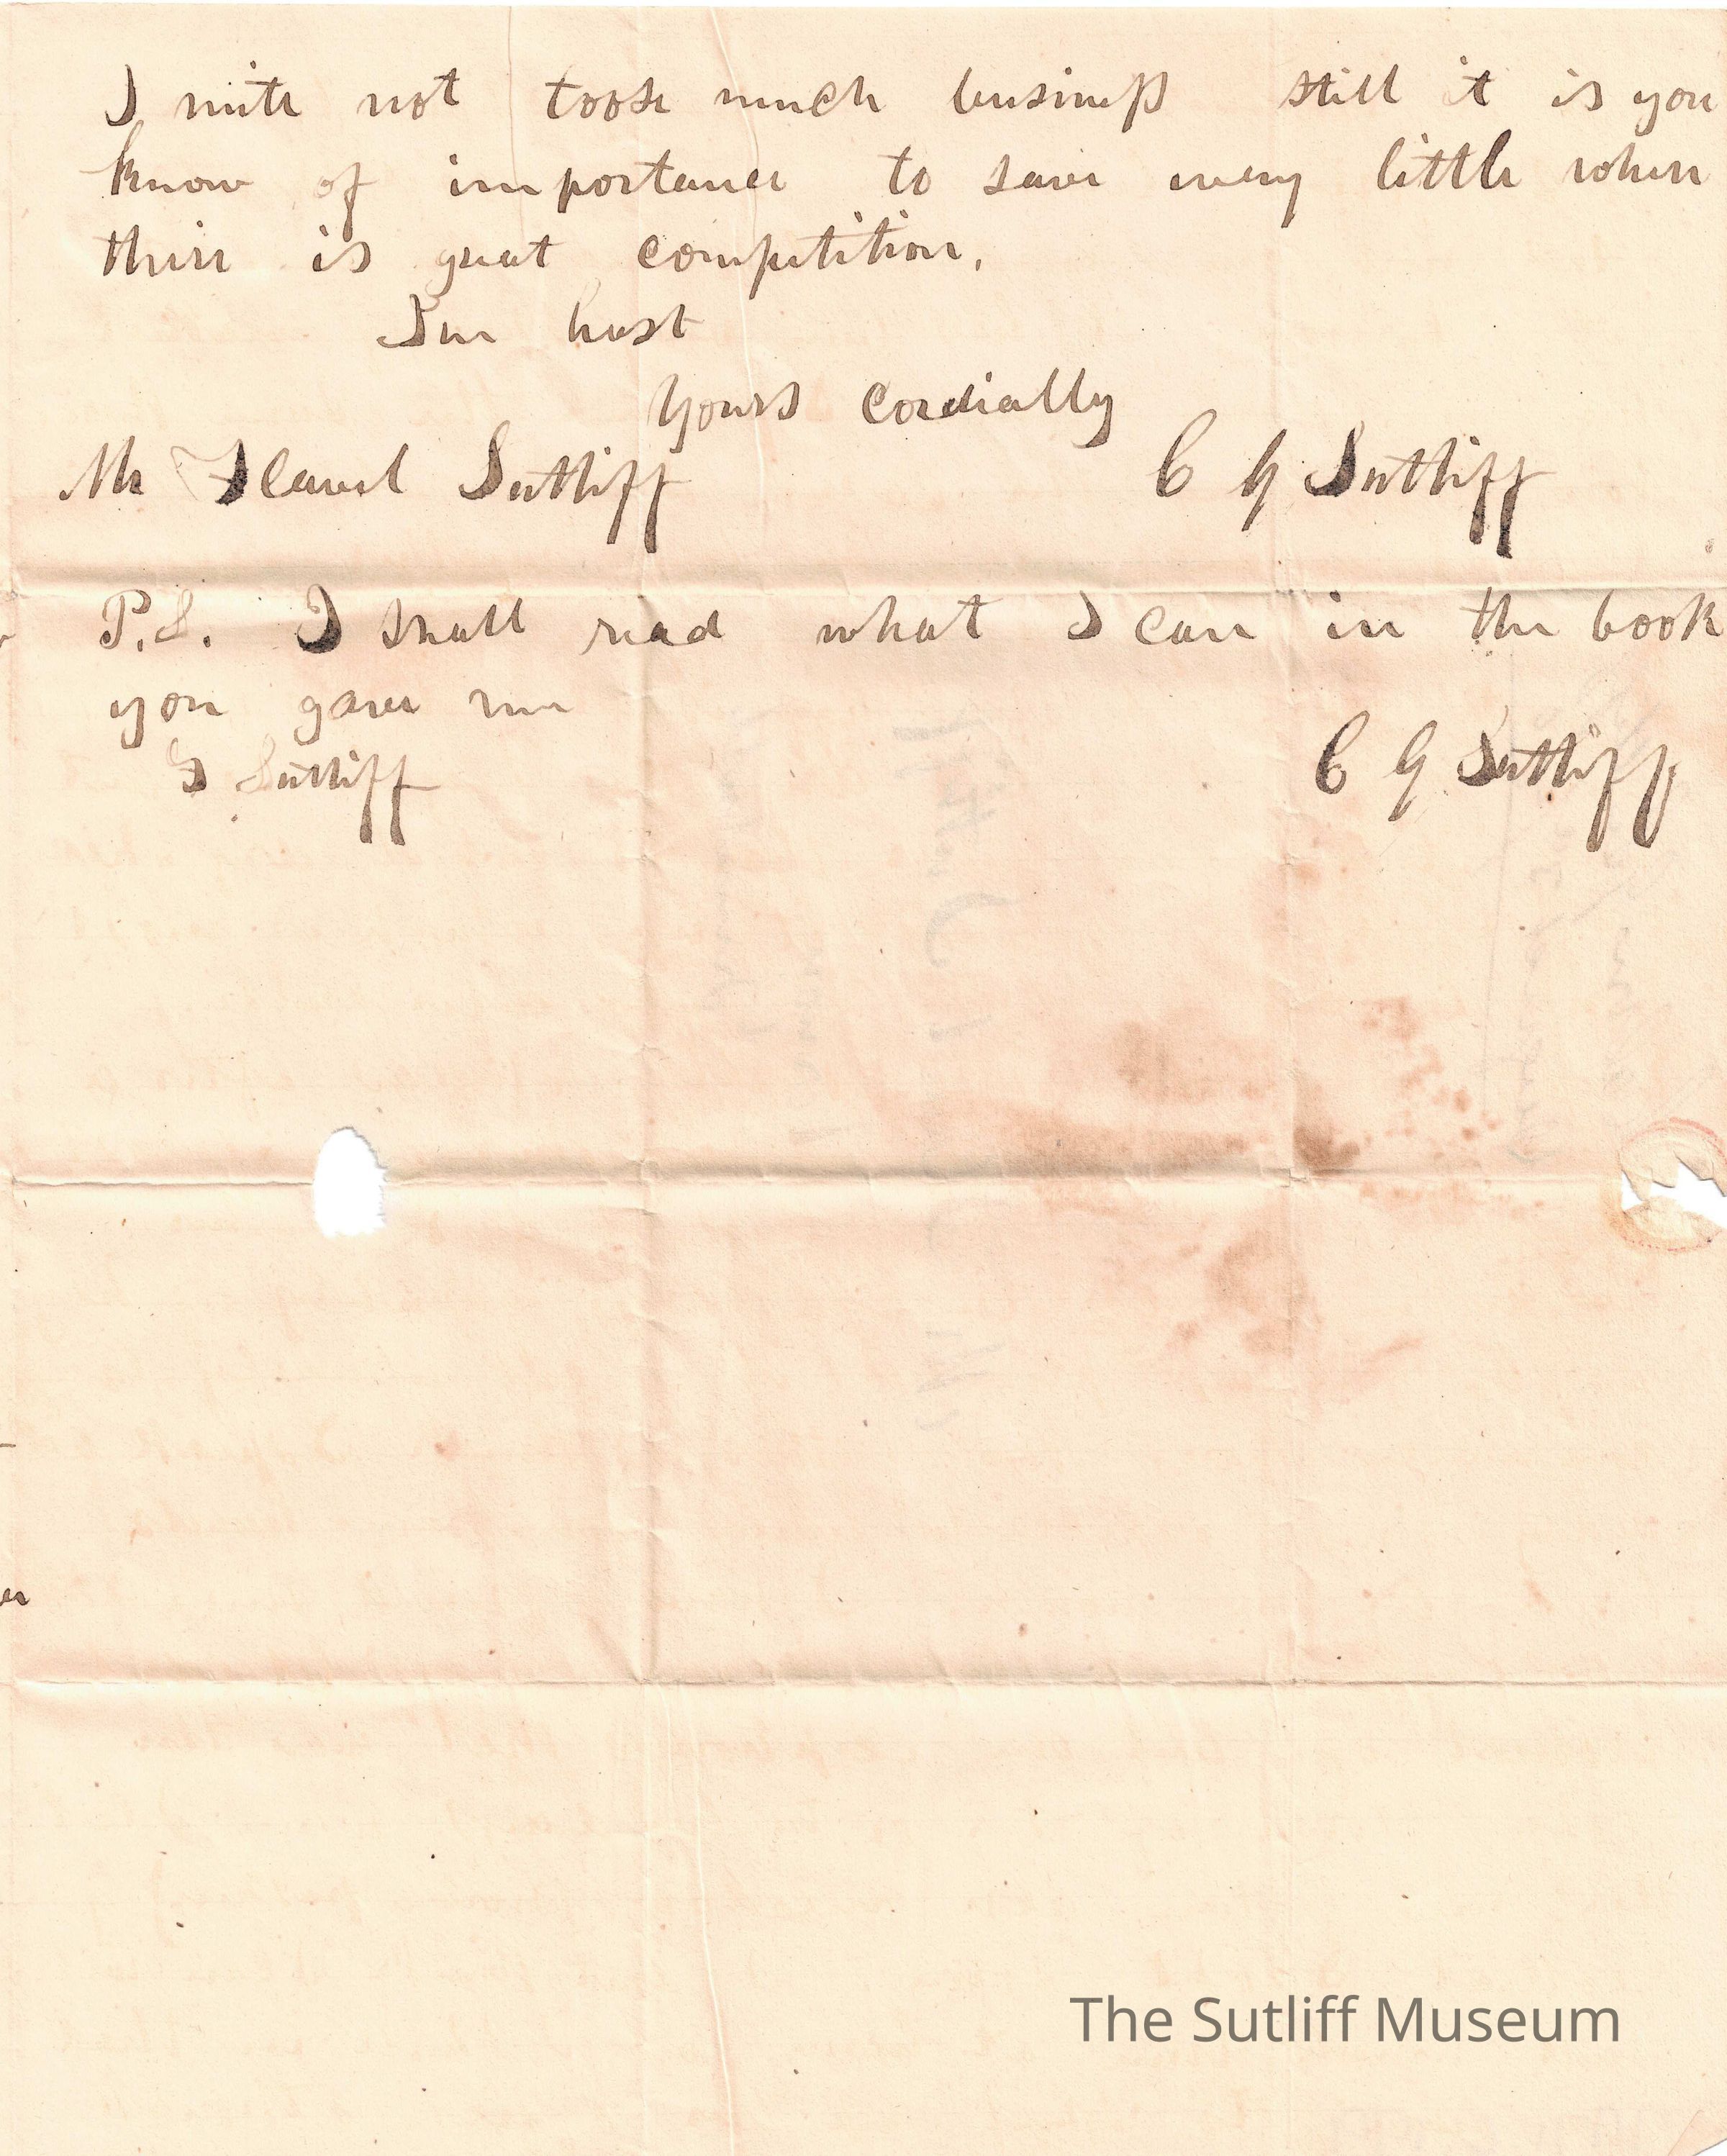 I mite not toose much business still it is you
know of importance to save every little when
there is great competition.
In hast
Yours Cordially
Mr Flavel Sutliff C G Sutliff
P.S. I shall read what I can in the book
you gave me
F Sutliff C G Sutliff
The Sutliff Museum